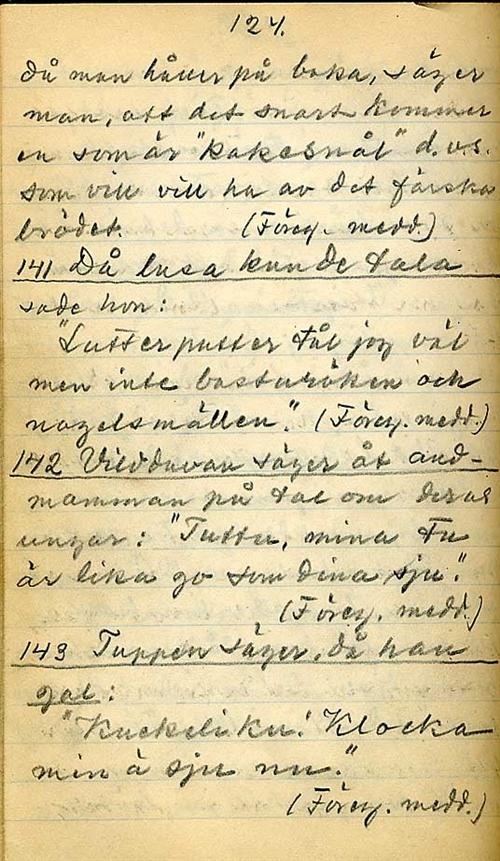 124.
då man håller på baka, säger
man, att det snart kommer
en som är "kakesnål" d.v.s.
som vill vill ha av det färska
brödet. (Föreg. medd.)
141 Då lusa kunde tala
sade hon:
"Lutter putter tål jag väl
men inte basturöken och
nagelsmällen." (Föreg. medd.)
142 Vildduvan säger åt and-
mamman på tal om deras
ungar: "Tuttu, mina tu
är lika go som dina sju."
(Föreg. medd.)
143 Tuppen säger, då han
gal:
"Kuckeliku! Klocka
min ä sju nu."
(Föreg. medd.)